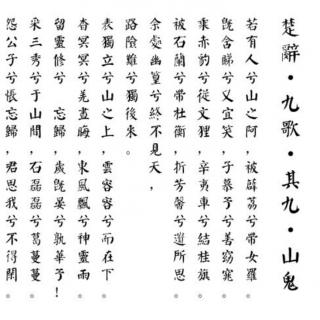 楚辭·九歌·其九·山鬼
若有人兮山之阿,被薜荔兮帶女羅。
既含睇兮又宜笑,子慕予兮善窈窕。
乘赤豹兮從文狸,辛夷車兮結桂旗。
被石蘭兮帶杜衡,折芳馨兮遺所思。
余處幽篁兮終不見天,
路險難兮獨後來。
表獨立兮山之上,雲容容兮而在下。
杳冥冥兮羌晝晦,東風飄兮神靈雨。
留靈修兮 忘歸,歲既晏兮孰華予!
采三秀兮于山間,石磊磊兮葛蔓蔓。
怨公子兮悵忘歸,君思我兮不得閒。